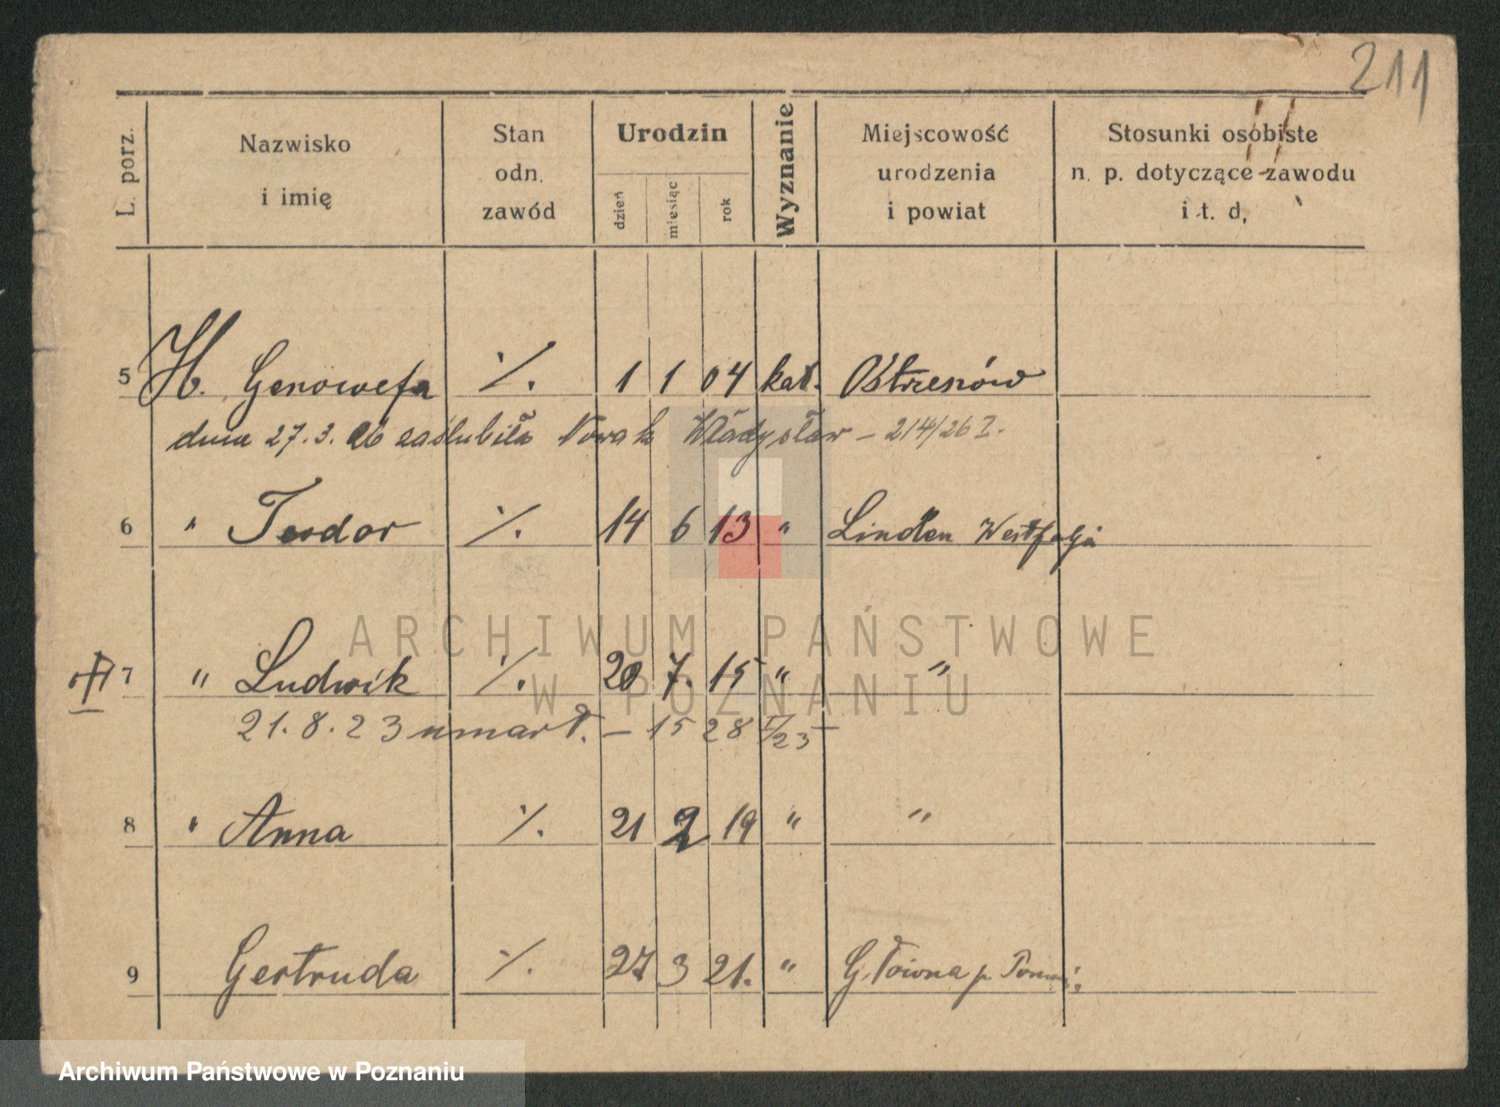 211
L. porz.
Nazwisko
i imię
Stan
odn.
zawód
Urodzin
dzień
miesiąc
rok
Wyznanie
Miejscowość
urodzenia
i powiat
Stosunki osobiste
n. p. dotyczące zawodu
i t. d.
5 H. Genowefa ·/. 1 1 04 kat. Ostrzeszów
dnia 27.3.26 zaślubiła Nowak Władysław – 214/26 I.
6 " Teodor ·/. 14 6 13 " Linden Westfalja
7 " Ludwik ·/. 20 7. 15 " "
21.8.23 umarł. – 15 28 I/23 –
8 " Anna ·/. 21 2 19 " "
9 Gertruda ·/. 27 3 21. " Główna p. Poznań.
ARCHIWUM PAŃSTWOWE
W POZNANIU
Archiwum Państwowe w Poznaniu